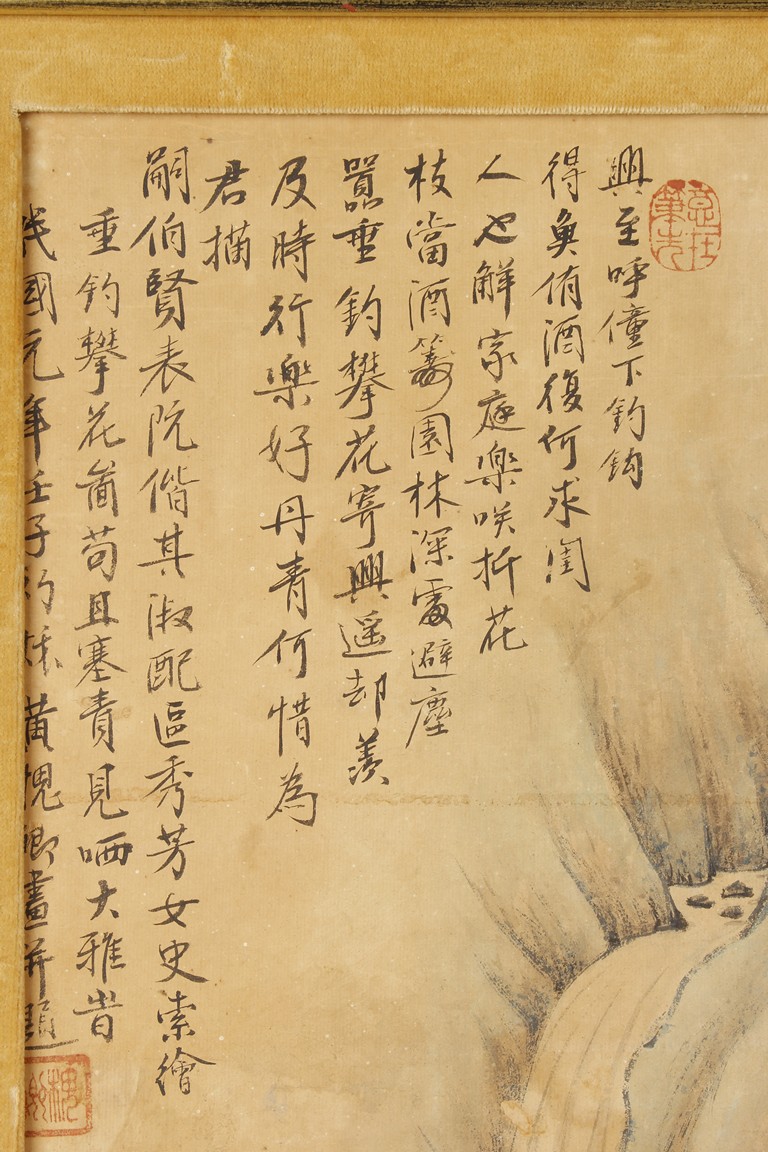 意在筆先
興至呼僮下釣鈎
得魚侑酒復何求閨
人也解家庭樂咲折花
枝當酒籌園林深處避塵
囂垂釣攀花寄興遥却羨
及時行樂好丹青何惜為
君描
嗣伯賢表阮偕其淑配區秀芳女史索繪
垂釣攀花啚苟且塞責見哂大雅旹
民國元年壬子初 黄槐卿畫并題
槐卿